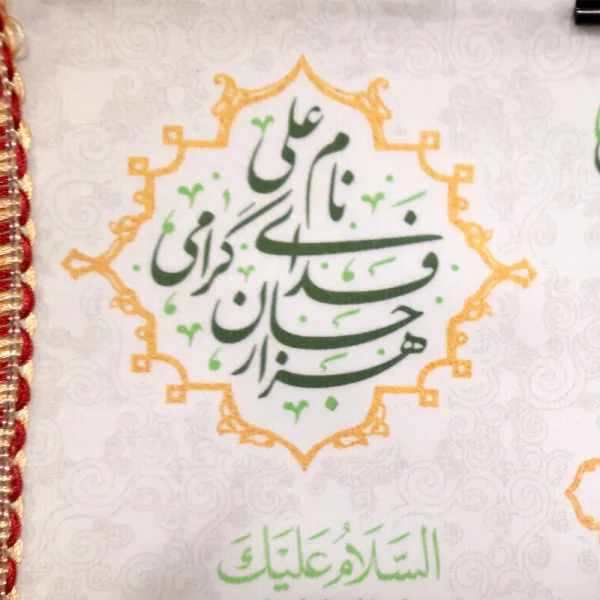 هزار جان گرامی فدای نام علی
السَّلَامُ عَلَيْكَ